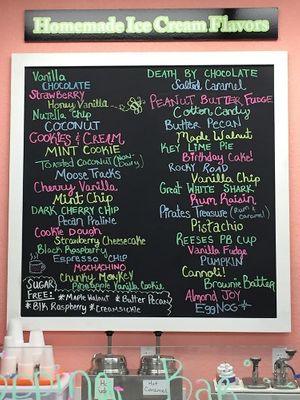 Homemade Ice Cream Flavors
Vanilla
CHOCOLATE
STRAWBERRY
Honey Vanilla
Nutella Chip
COCONUT
COOKIES & CREAM
MINT COOKIE
TOASTED COCONUT (Non-Dairy)
Moose Tracks
Cherry Vanilla
Mint Chip
DARK CHERRY CHIP
Pecan Praline
Cookie Dough
Strawberry Cheesecake
Black Raspberry
ESPRESSO CHIP
MOCHACHINO
Chunky Monkey
Pineapple Vanilla Chip
SUGAR FREE!
*Maple Walnut *Butter Pecan
*Blk Raspberry *Creamsickle
DEATH BY CHOCOLATE
Salted Caramel
PEANUT BUTTER FUDGE
Cotton Candy
Butter Pecan
Maple Walnut
KEY LIME PIE
Birthday Cake!
ROCKY ROAD
Vanilla Chip
Great WHITE SHARK
Rum Raisin
Pirates Treasure (Rum & caramel)
Pistachio
REESES PB CUP
Vanilla Fudge
PUMPKIN
Cannoli!
Brownie Batter
Almond JOY
EGGNOG
Hot
Caramel